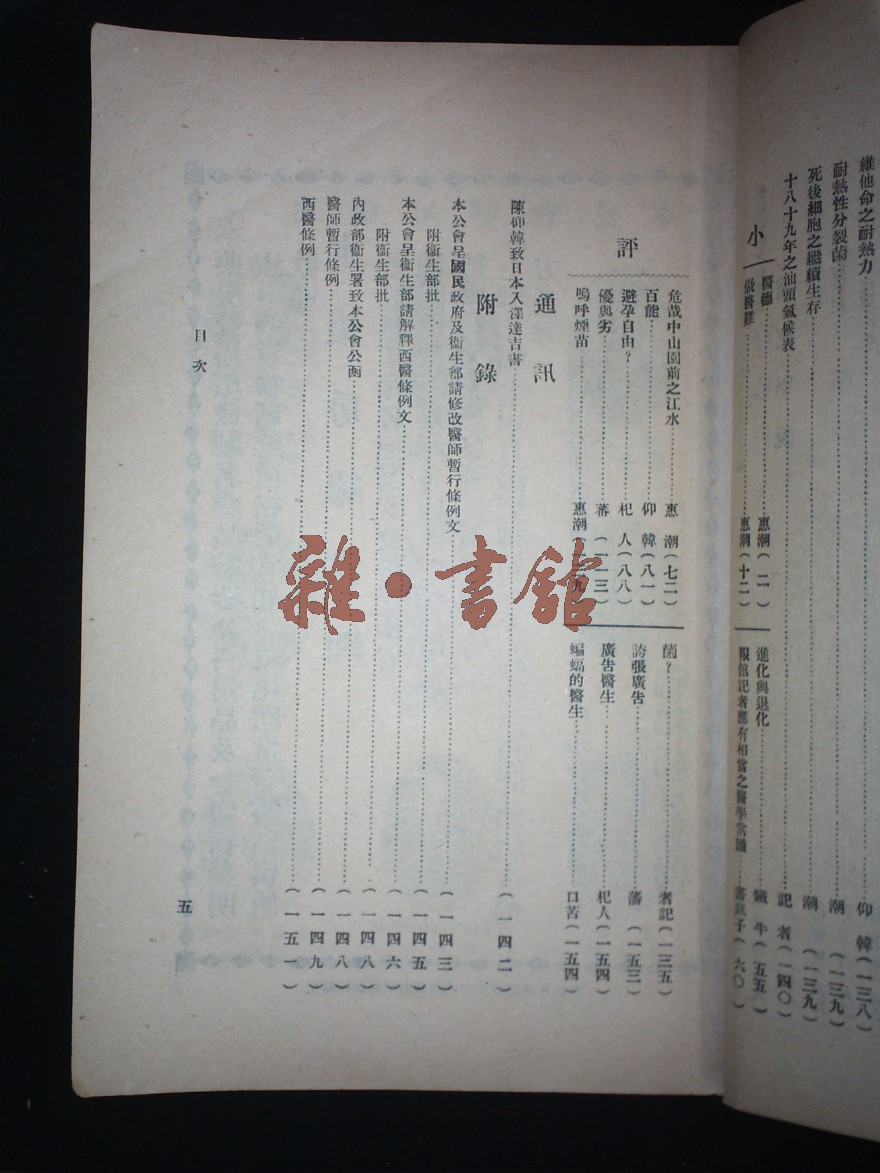 維他命之耐熱力 仰韓(一三八)
耐熱性分裂菌 潮(一三九)
死後細胞之繼續生存 潮(一三九)
十八十九年之汕頭氣候表 記者(一四〇)
小
醫德 惠潮(二)
做醫難 惠潮(十二)
進化與退化 鐵牛(五五)
報館記者應有相當之醫學常識 書獃子(六〇)
評
危哉中山園前之江水 惠潮(七二)
百能 仰韓(八一)
避孕自由? 杞人(八八)
優與劣 蕃(一一三)
嗚呼煙苗 惠潮(一一九)
菌? 者記(一三五)
誇張廣告 藩(一五三)
廣告醫生 杞人(一五四)
蝙蝠的醫生 口苦(一五四)
通訊
陳仰韓致日本入澤達吉書(一四二)
附錄
本公會呈國民政府及衞生部請修改醫師暫行條例文(一四三)
附衞生部批(一四五)
本公會呈衞生部請解釋西醫條例文(一四六)
附衞生部批(一四八)
內政部衞生署致本公會公函(一四八)
醫師暫行條例(一四九)
西醫條例(一五一)
目次
五
雜·書館